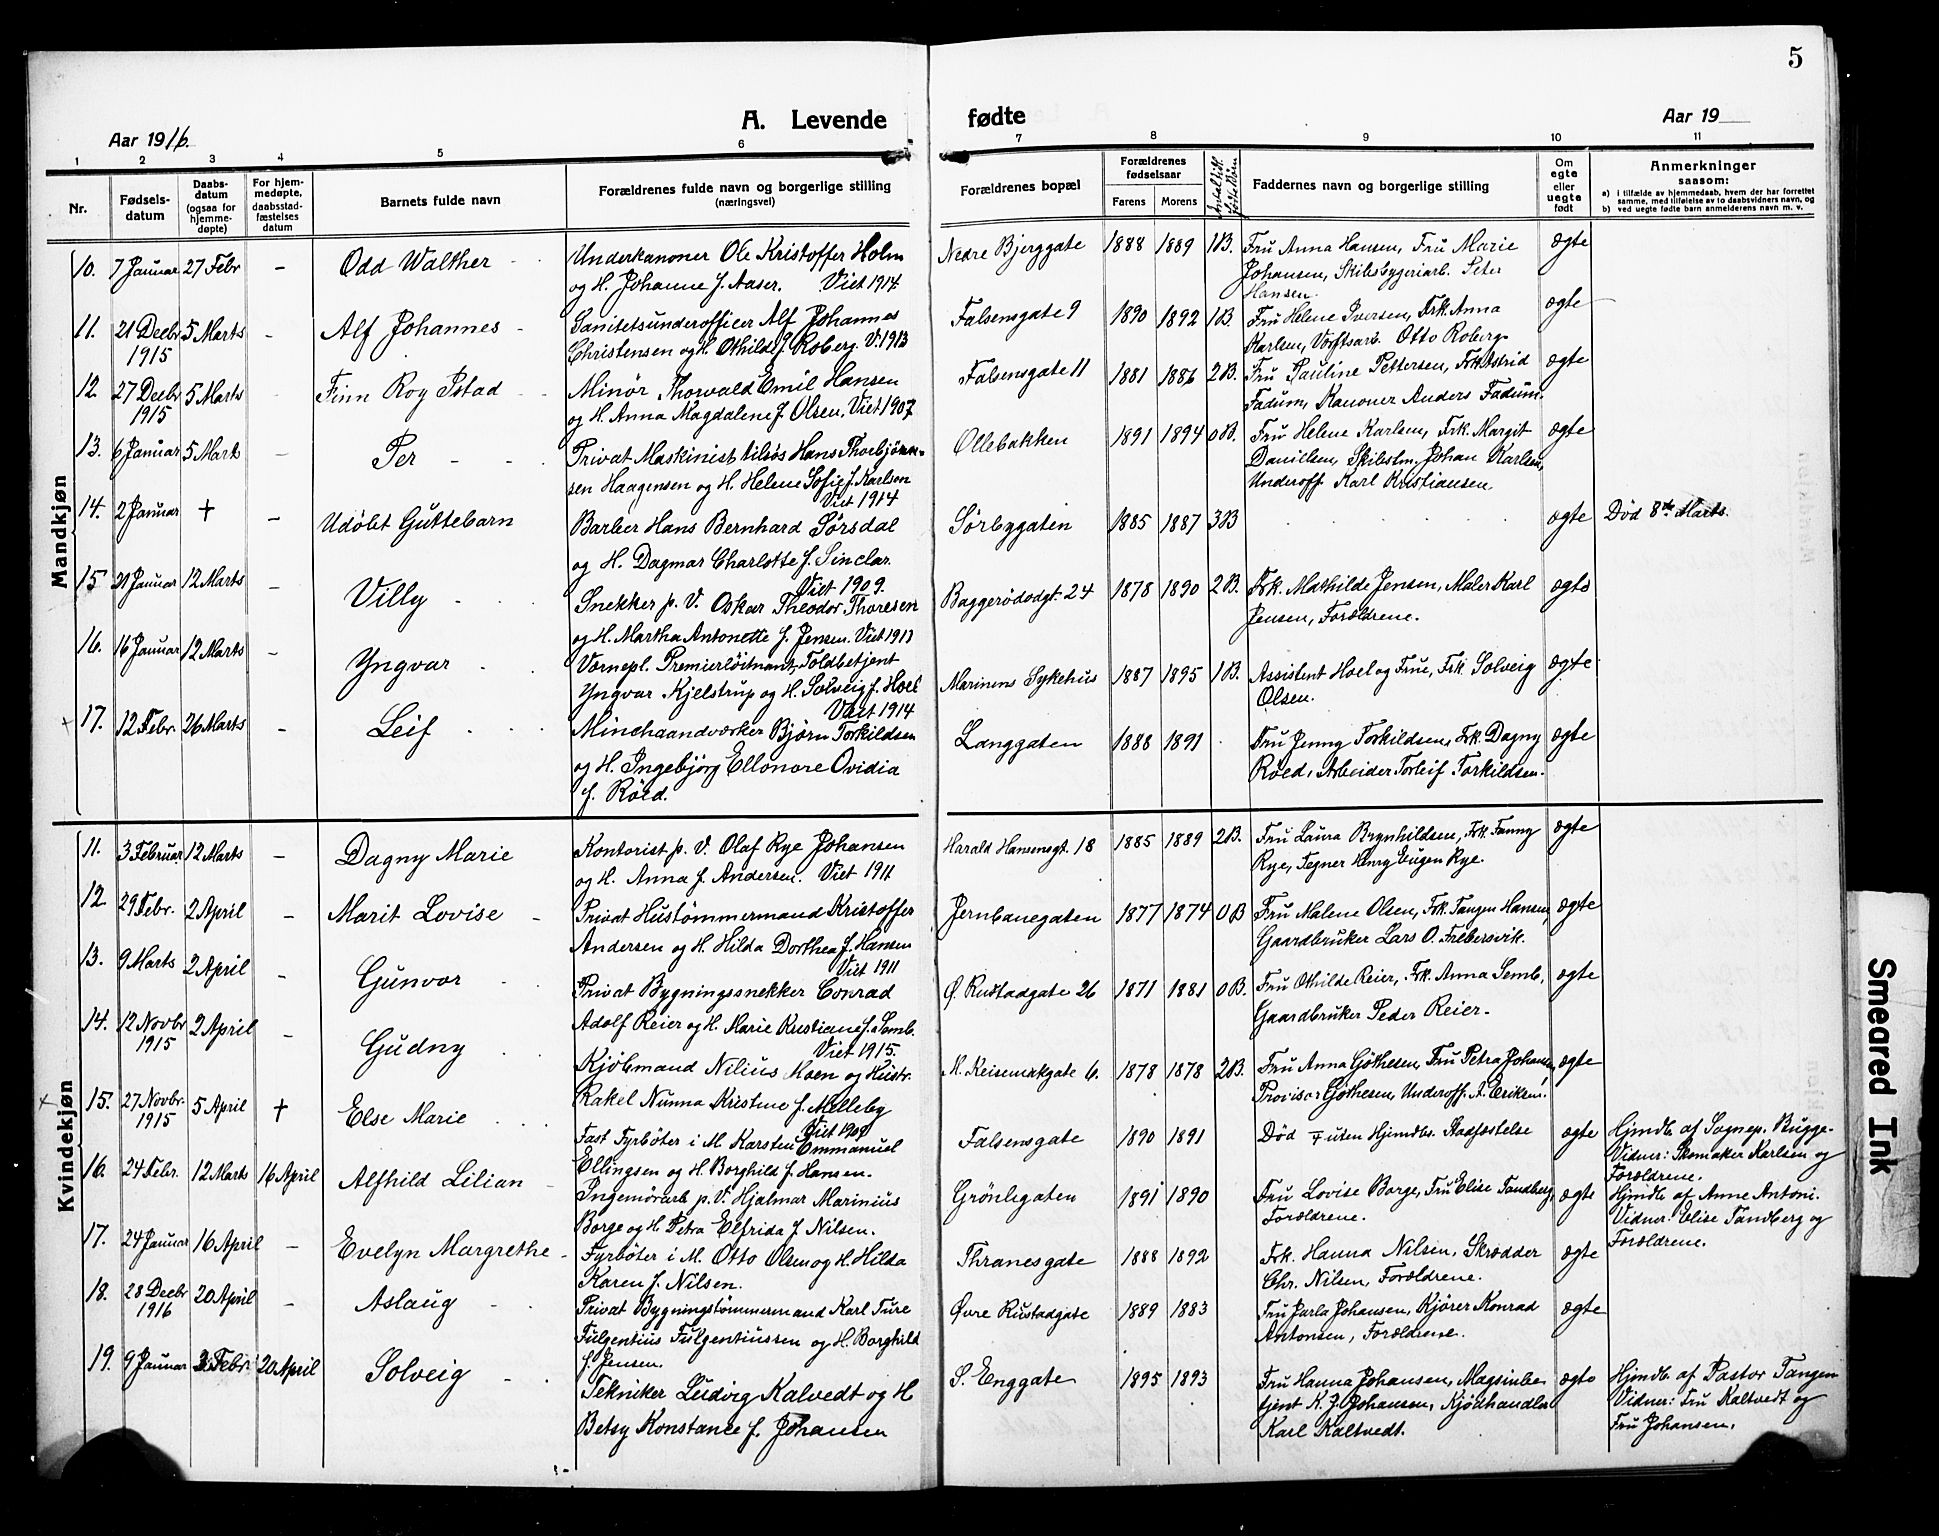 5
A. Levende fødte
Aar 1916.
Aar 19
1 2 3 4 5 6 7 8 9 10 11
Nr.
Fødsels-
datum
Daabs-
datum
(ogsaa for
hjemme-
døpte)
For hjem-
medøpte,
daabsstad-
fæstelses
datum
Barnets fulde navn
Forældrenes fulde navn og borgerlige stilling
(næringsvei)
Forældrenes bopæl
Forældrenes
fødselsaar
Farens Morens
Antal tidl.
fødte Børn
Faddernes navn og borgerlige stilling
Om
egte
eller
uegte
født
Anmerkninger
saasom:
a) i tilfælde av hjemmedaab, hvem der har forrettet
samme, med tilføielse av to daabsvidners navn, og
b) ved uegte fødte barn anmelderens navn m. v.
Mandkjøn
10. 7 Januar 27 Febr - Odd Walther
Underkanoner Ole Kristoffer Holm
og H. Johanne f. Aaser. Viet 1914
Nedre Bjerggate 1888 1889 1B.
Fru Anna Hansen, Fru Marie
Johansen, Skibsbygeriarb. Peter
Hansen.
ægte
11. 21 Decbr 1915 5 Marts - Alf Johannes
Sanitetsunderofficer Alf Johannes
Christensen og H. Othilde f. Roberg. V. 1913
Falsensgate 9 1890 1892 1B.
Fru Helene Iversen, Frk. Anna
Karlsen, Værftsarb. Otto Roberg.
ægte
12. 27 Decbr 1915 5 Marts Finn Roy Istad
Minör Thorvald Emil Hansen
og H. Anna Magdalene f. Olsen, Viet 1907
Falsensgate 11 1881 1886 2B.
Fru Pauline Pettersen, Frk Astrid
Fadum, Kanoner Anders Fadum.
ægte
13. 6 Januar 5 Mart - Per
Privat Maskinist tilsös Hans Thorbjörn-
sen Haagensen og H. Helene Sofie f. Karlsen
Viet 1914
Ollebakken 1891 1894 0B.
Fru Helene Karlsen, Frk. Margit
Danielsen, Skibstm. Johan Karlsen,
Underoff. Karl Kristiansen.
ægte
14. 2 Januar + - Udöbt Guttebarn
Barber Hans Bernhard Sörsdal
og H. Dagmar Charlotte f. Sinclar.
Viet 1909.
Sörbygaten 1885 1887 3B
ægte
Död 8de Marts.
15. 21 Januar 12 Marts - Villy
Snekker p. V. Oskar Theodor Thoresen
og H. Martha Antonette f. Jensen. Viet 1913
Baggerödsgt. 24 1878 1890 2B.
Frk. Mathilde Jensen, Maler Karl
Jensen, Forældrene.
ægte
16. 16 Januar 12 Marts - Yngvar
Vernepl. Premierlöitnant, Toldbetjent
Yngvar Kjelstrup og H. Solveig f. Hoel
Viet 1914
Marinens Sykehus 1887 1895 1B.
Assistent Hoel og Frue, Frk. Solveig
Olsen.
ægte
17. 12 Febr. 26 Marts - Leif
Minehaandverker Björn Torkildsen
og H. Ingebjörg Ellonore Ovidia
f. Röed.
Langgaten 1888 1891
Fru Jenny Torkildsen, Frk. Dagny
Röed, Arbeider Torleif Torkildsen.
ægte
Kvindekjøn
11. 3 Februar 12 Marts - Dagny Marie
Kontorist p. V. Olaf Rye Johansen
og H. Anna f. Andersen. Viet 1911
Harald Hansensgt. 18 1885 1889 2B.
Fru Laura Brynhildsen, Frk. Fanny
Rye, Tegner Henry Eugen Rye.
ægte
12. 29 Febr. 2 April - Marit Lovise
Privat Hustömmermand Kristoffer
Andersen og H. Hilda Dorthea f. Hansen
Viet 1911
Jernbanegaten 1877 1874 0B
Fru Malene Olsen, Frk. Tangen Hansen,
Gaardbruker Lars O. Frebersvik.
ægte
13. 9 Marts 2 April - Gunvor
Privat Bygningssnekker Conrad
Adolf Reier og H. Marie Kristiane f. Semb.
Viet 1915.
Ø. Rustadgate 26 1871 1881 0B.
Fru Othilde Reier, Frk. Anna Semb,
Gaardbruker Peder Reier.
ægte
14. 12 Novbr 1915 2 April - Gudny
Kjöbmand Nilius Moen og Hustr.
Rakel Nunna Kristine f. Melleby
Viet 1909
N. Keisemakgate 6. 1878 1878 2B.
Fru Anna Göthesen, Fru Petra Johansen,
Provisor Göthesen, Underoff. A. Eriksen.
ægte
15. 27 Novbr. 1915 5 April + Else Marie
Fast Fyrböter i M. Karsten Emmanuel
Ellingsen og H. Borghild f. Hansen.
Falsensgate 1890 1891
Död uten Hjemdbs. Stadfæstelse
ægte
Hjmdb. af Sognep. Bugge.
Vidner: Skomaker Karlsen og
Forældrene.
16. 24 Febr. 12 Marts 16 April Alfhild Lilian
Ingeniörarb p. V. Hjalmar Marinius
Borge og H. Petra Elfrida f. Nilsen.
Grönligaten 1891 1890
Fru Lovise Borge, Fru Elise Tandberg,
Forældrene.
ægte
Hjmdb. af Anne Antoni.
Vidner: Elise Tandberg og
Forældrene.
17. 24 Januar 16 April - Evelyn Margrethe
Fyrböter i M. Otto Olsen og H. Hilda
Karen f. Nilsen.
Thranesgate 1888 1892
Frk. Hanna Nilsen, Skrædder
Chr. Nilsen, Forældrene.
ægte
18. 28 Decbr 1916 20 April - Aslaug
Privat Bygningstömmermand Karl Ture
Fulgentius Fulgentiussen og H. Borghild
f. Jensen.
Øvre Rustadgate 1889 1883
Fru Jarla Johansen, Kjörer Konrad
Antonsen, Forældrene.
ægte
19. 9 Januar 3 Febr 20 April Solveig
Tekniker Ludvig Kalvedt og H
Betsy Konstance f. Johansen
S. Enggate 1895 1893
Fru Hanna Johansen, Magsinbe-
tjent K. J. Johansen, Kjödhandler
Karl Kaltvedt.
ægte
Hjmdb. af Pastor Tangen
Vidner: Fru Kaltvedt og
Fru Johansen.
Smeared Ink